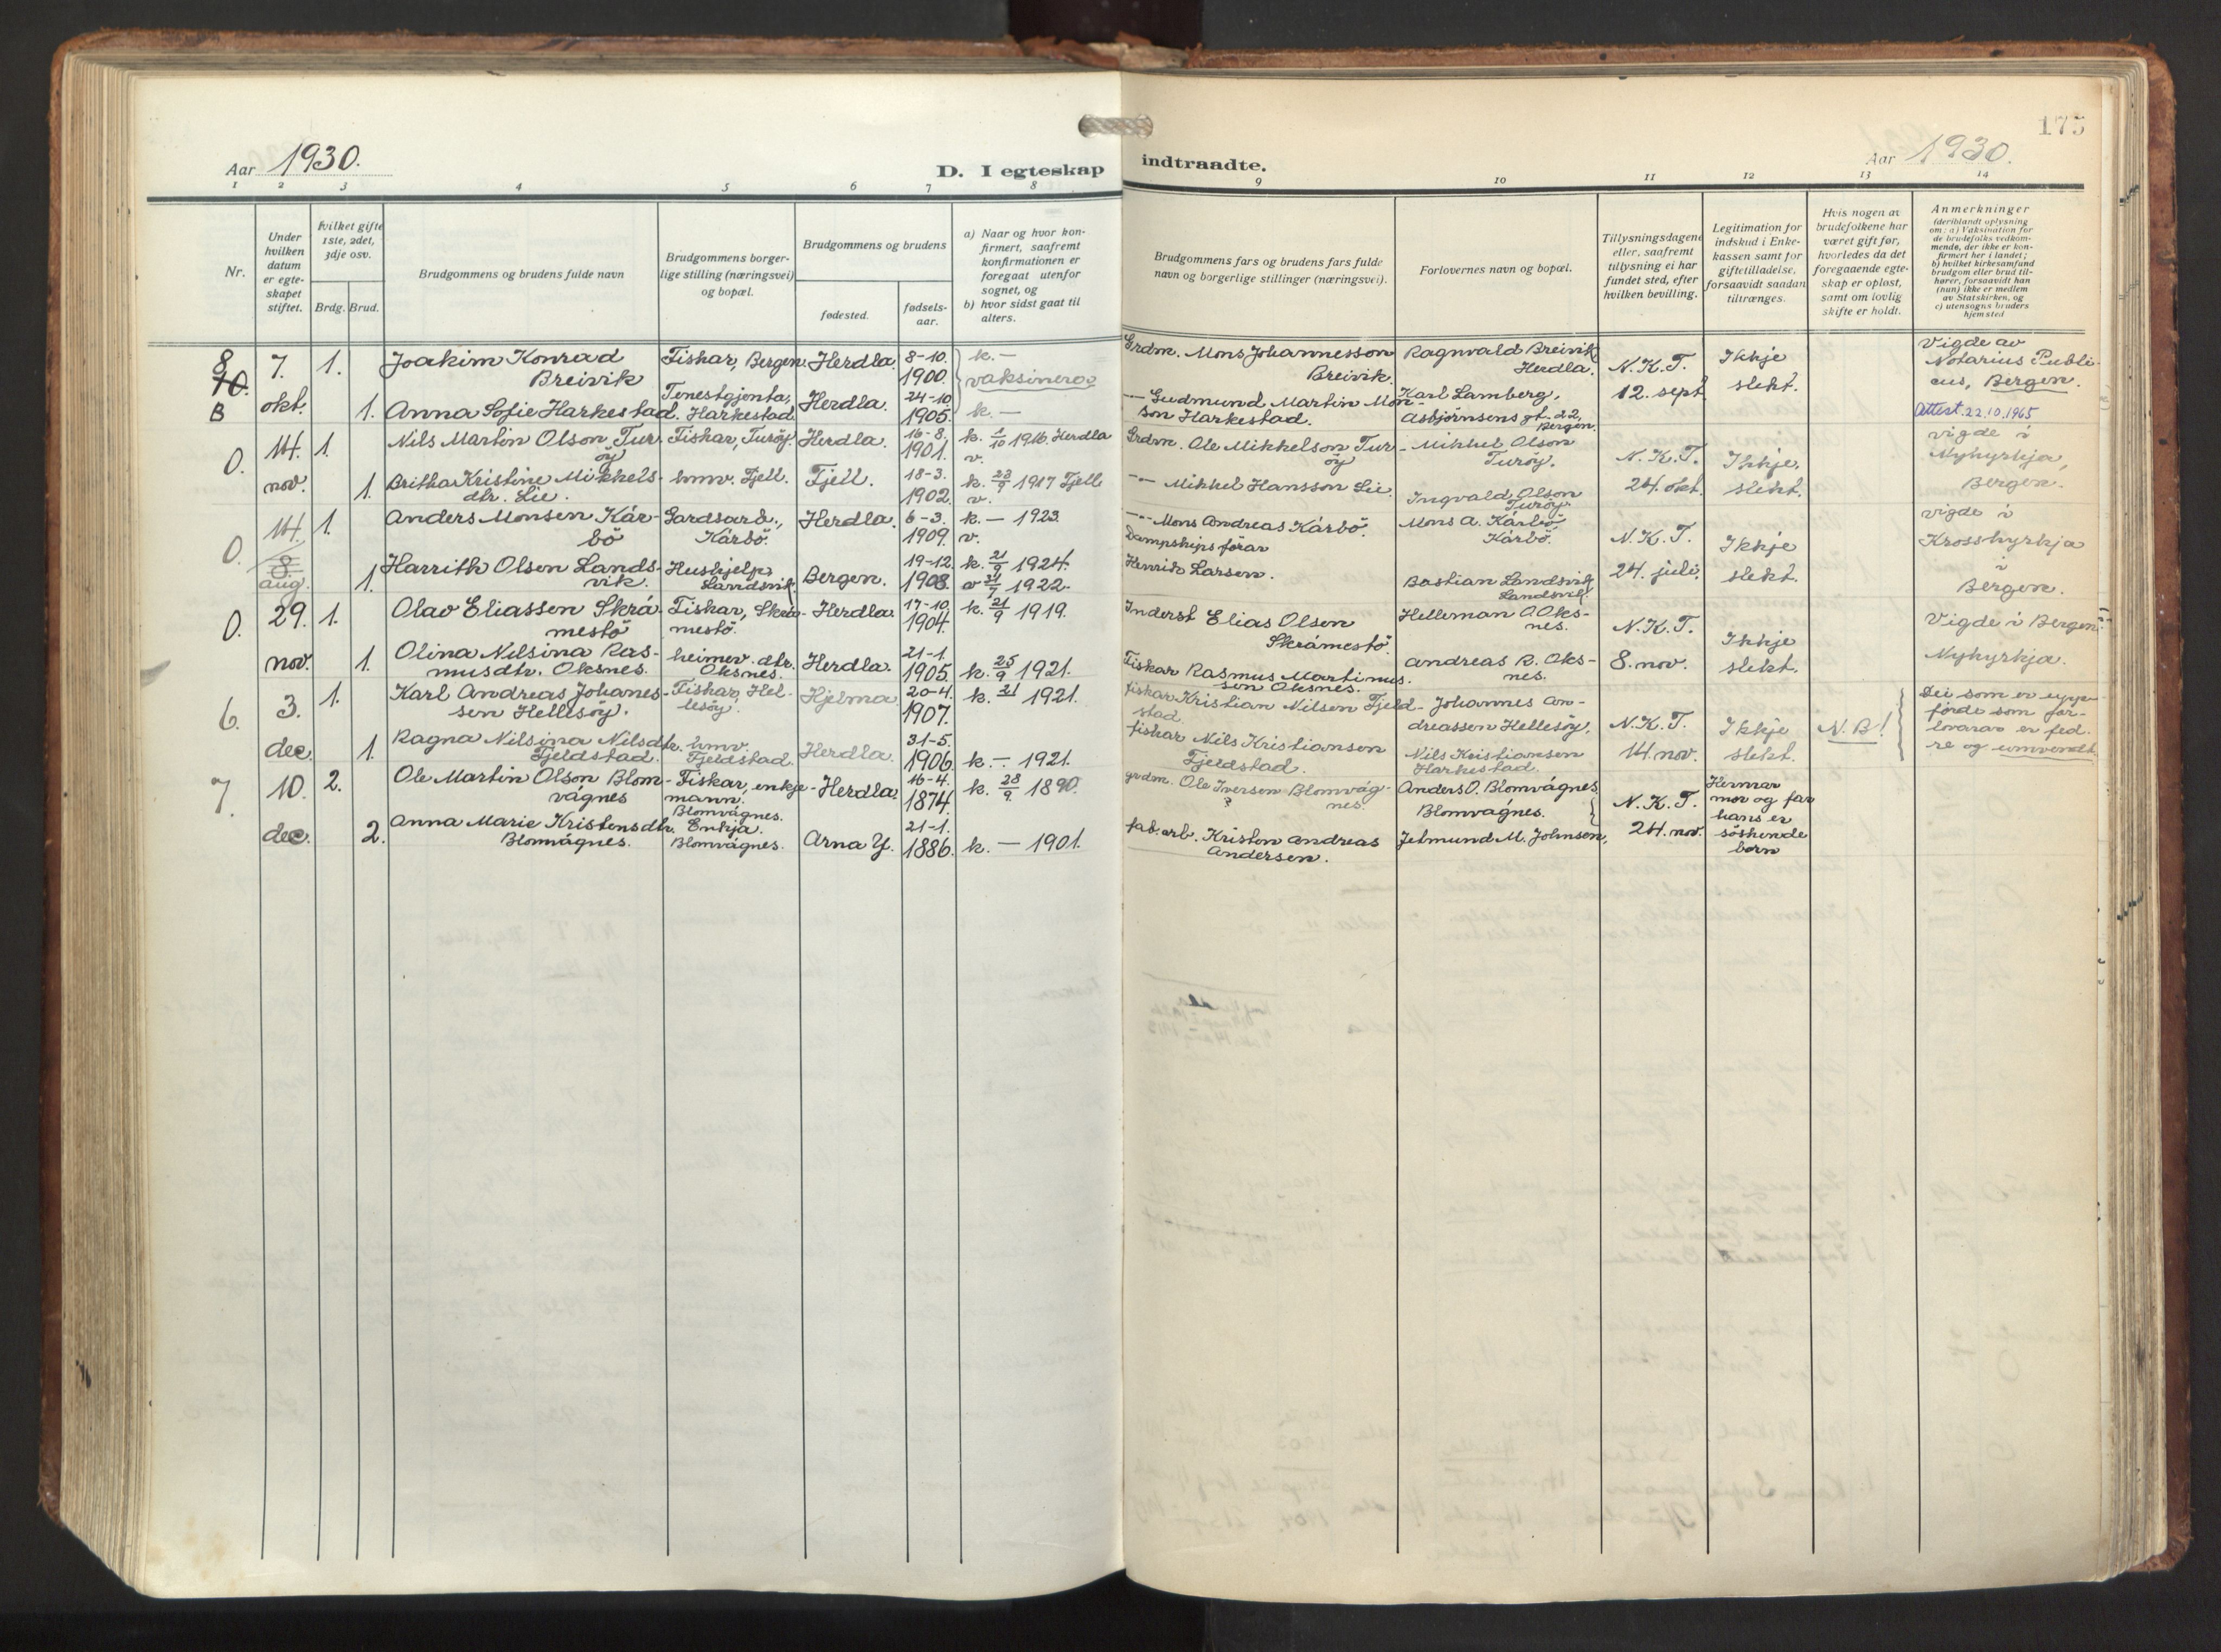 175
Aar 1930.
D. I egteskap indtraadte.
Aar 1930.
1 2 3 4 5 6 7 8 9 10 11 12 13 14
Nr.
Under hvilken datum er egteskapet stiftet.
Hvilket gifte 1ste, 2det, 3dje osv.
Brdg. Brud.
Brudgommens og brudens fulde navn
Brudgommens borgerlige stilling (næringsvei) og bopæl.
Brudgommens og brudens
fødested.
fødselsaar.
a) Naar og hvor konfirmert, saafremt konfirmationen er foregaat utenfor sognet, og
b) hvor sidst gaat til alters.
Brudgommens fars og brudens fars fulde navn og borgerlige stillinger (næringsvei).
Forlovernes navn og bopæl.
Tillysningsdagene eller, saafremt tillysning ei har fundet sted, efter hvilken bevilling.
Legitimation for indskud i Enkekassen samt for giftetilladelse, forsaavidt saadan tiltrænges.
Hvis nogen av brudefolkene har været gift før, hvorledes da det foregaaende egteskap er opløst, samt om lovlig skifte er holdt.
Anmerkninger
(deriblandt oplysning om: a) Vaksination for de brudefolks vedkommende, der ikke er konfirmert her i landet; b) hvilket kirkesamfund brudgom eller brud tilhører, forsaavidt han (hun) ikke er medlem av Statskirken, og c) utensogns bruders hjemsted
8 10. B
7. okt.
1.
Joakim Konrad
Breivik
Fiskar, Bergen.
Herdla.
8-10. 1900.
k. —
vaksinerer
Grdm. Mons Johannesson
Breivik.
Ragnvald Breivik
Herdla.
N.K.T.
12. sept.
Ikkje
slekt.
Vigde av
Notarius Publi-
cus, Bergen.
Attest. 22.10.1965
1.
Anna Sofie Harkestad.
Tenestgjenta,
Harkestad
Herdla.
24-10 1905.
k. —
— Gudmund Martin Mon-
son Harkestad.
Karl Lamberg,
Asbjörnsens gt. 22,
Bergen.
0.
14. nov.
1.
Nils Martin Olson Tur-
öy
Fiskar, Turöy.
Herdla.
16-8. 1901.
k. 1/10 1916. Herdla
v.
Grdm. Ole Mikkelson Tur-
öy
Mikkel Olson
Turöy.
N.K.T.
24. okt.
Ikkje.
slekt.
vigde i
Nykyrkja,
Bergen.
1.
Britha Kristine Mikkels-
dtr. Lie.
hmv. Fjell.
Fjell.
18-3. 1902.
k. 23/9 1917 Fjell
v.
— Mikkel Hansson Lie.
Ingvald Olson
Turöy.
0.
14. 8. aug.
1.
Anders Monsen Kár-
bö
Gardsarb.,
Kárbö.
Herdla.
6-3. 1909.
k. — 1923.
v.
— Mons Andreas Kárbö.
Mons A. Kárbö
Kárbö.
N.K.T.
24. juli.
Ikkje
slekt.
vigde i
Krosskyrkja
i
Bergen.
1.
Harrith Olsen Lands-
vik.
Hushjelp,
Landsvik
Bergen.
19-12. 1908.
k. 21/9 1924.
v 31/7 1922.
Dampskipsförar
Henrik Larsen.
Bastian Landsvik
Landsvik.
0.
29. nov.
1.
Olav Eliassen Skrá-
mestö
Fiskar, Skrá-
mestö.
Herdla.
17-10. 1904.
k. 21/9 1919.
Inderst Elias Olsen
Skrámestö.
Helleman O. Oks-
nes.
N.K.T.
8. nov.
Ikkje
slekt.
Vigde i Bergen:
Nykyrkja.
1.
Olina Nilsina Ras-
musdtr. Oksnes.
heimev. dtr.
Oksnes.
Herdla.
21-1. 1905.
k. 25/9 1921.
Fiskar Rasmus Martinus-
sen Oksnes.
Andreas R. Oks-
nes.
6.
3. dec.
1.
Karl Andreas Johanes-
sen Hellesöy.
Fiskar, Hel-
lesöy.
Hjelma
20-4. 1907.
k. 21 1921.
fiskar Kristian Nilsen Fjeld-
stad.
Johannes An-
dreassen Hellesöy.
N.K.T.
14. nov.
Ikkje
slekt.
N.B!
Dei som er upp-
förde som for-
lovarar er fed-
re og umvendt.
1.
Ragna Nilsina Nilsdtr.
Fjeldstad.
hmv.
Fjeldstad.
Herdla.
31-5. 1906.
k. — 1921.
fiskar Nils Kristiansen
Fjeldstad.
Nils Kristiansen
Harkestad.
7.
10. dec.
2.
Ole Martin Olson Blom-
vágnes
Fiskar, enkje-
mann.
Blomvágnes.
Herdla.
16-4. 1874.
k. 28/9. 1890.
grdm. Ole Iversen Blomvág-
nes.
?
Anders O. Blomvágnes.
Blomvágnes.
N.K.T.
24. nov.
Hennar
mor og far
hans er
söskende
born
2.
Anna Marie Kristensdtr.
Blomvágnes.
Enkja.
Blomvágnes.
Arna Y.
21-1. 1886.
k. — 1901.
fab.arb. Kristen Andreas
Andersen.
Jetmund M. Johnsen,